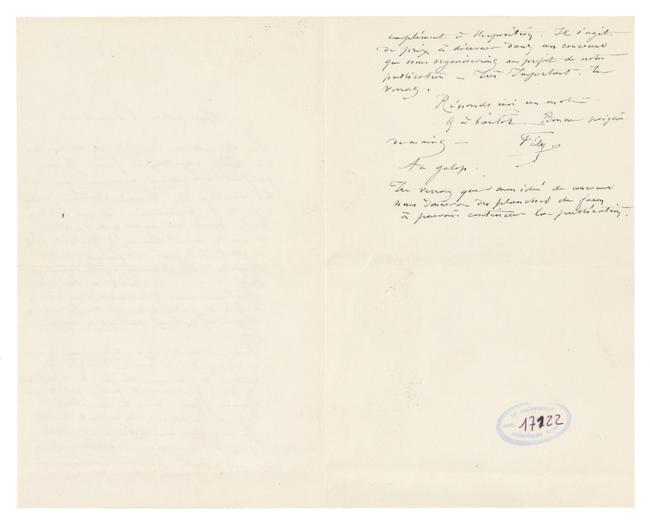 complément à l'exposition. Il s'agit
du prix à décerner dans un concours
que nous organiserons au profit de notre
publication — Très Important. Tu
verras.
Réponds moi un mot
& à bientôt Bonne poignée
de main — Fély
Au galop.
Tu verras que mon idée de concours
nous donnera des planches de façon
à pouvoir continuer la publication.
17122